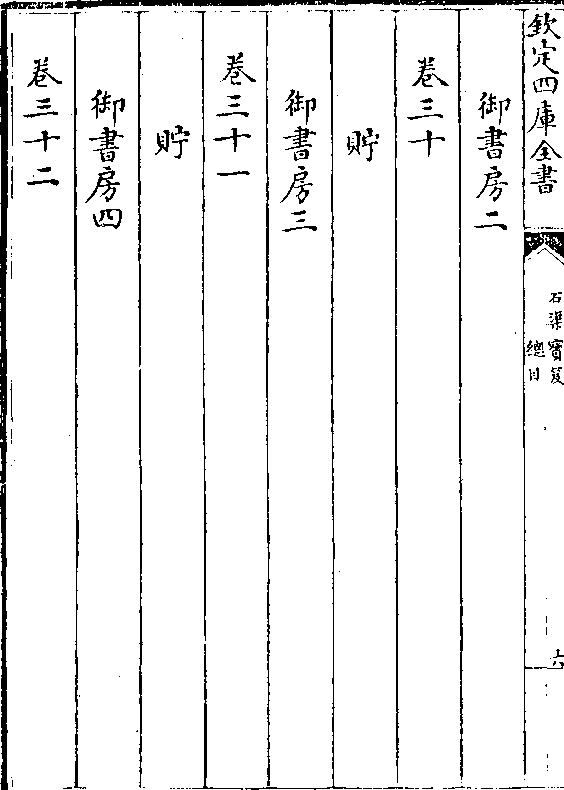 欽定四庫全書
石渠寶笈
總目
六
御書房二
卷三十
貯
御書房三
卷三十一
貯
御書房四
卷三十二